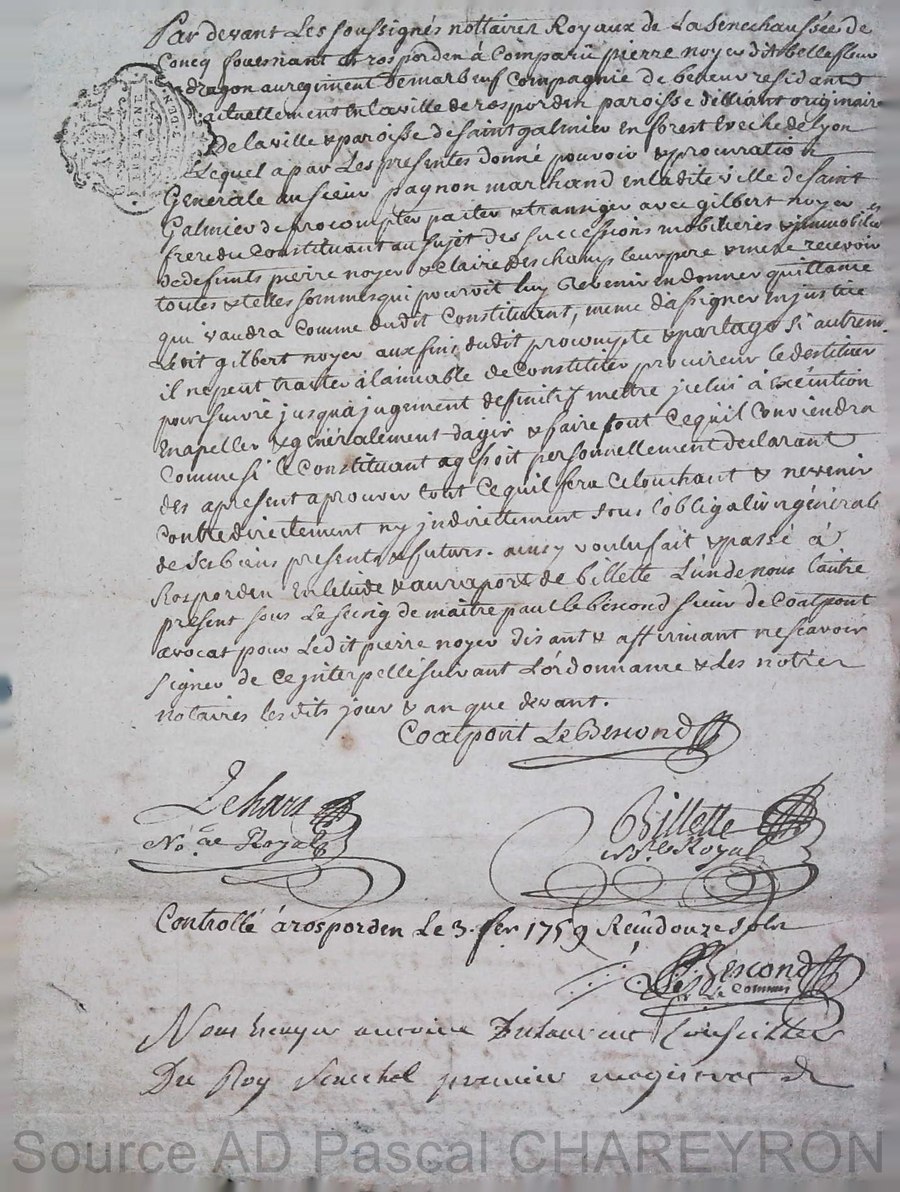 Par devant Les soussignés nottaires Royaux de La Senechaussée de
Concq fouesnant et rosporden à Comparü pierre noyer dit belle fleur
dragon au regiment de marbeuf Compagnie de beneur residant
actuellement en la ville de rosporden paroisse délliant originaire
De la ville & paroisse de saint galmier en forest Eveché de Lyon
Lequel a par Les presentes donné pouvoir & procuration
Generale au sieur pagnon marchand en ladite ville de Saint
Galmier de procompter paiter & transiger avec gilbert noyer
frere du Constituant au sujet des successions mobilieres & immobilieres
de defunts pierre noyer & claire Deschamps leur pere & mere recevoir
toutes & telles sommes qui pouroit luy Revenir en donner quittance
qui vaudra comme dudit Constituant, meme dassigner en justice
Ledit gilbert noyer aux fins dudit procompte & partage si autrem.
il ne peut traiter à lamiable de Constituer procureur le destituer
poursuivre jusqua jugement definitif mettre jcelui à exécution
En apeller & généralement dagir & faire tout ce quil Conviendra
Comme si le Constituant agissoit personnellement declarant
des apresent aprouver tout ce quil fera ce touchant & ne venir
Contre directement ny jndirectement sous lobligation générale
de ses biens presents & futurs. ainsy voulu fait & passé à
Rosporden En letude & au raport de billette Lún de nous Lautre
present sous Le seing de maitre paul le bescond sieur de Coatpont
avocat pour Ledit pierre noyer disant & affirmant ne scavoir
signer de ce jnterpellé suivant Lórdonnance & Les notres
notaires les dits jour & an que devant.
Coatpont Le Bescond
Dehars
No.re Royal
Billette
No.re Royal
Controllé à rosporden Le 3. fev 1759 Reçu douze sols
Le Bescond
Le Commis
Nous antoine Conseiller
Du Roy Senechal premier magistrat de
Source AD Pascal CHAREYRON